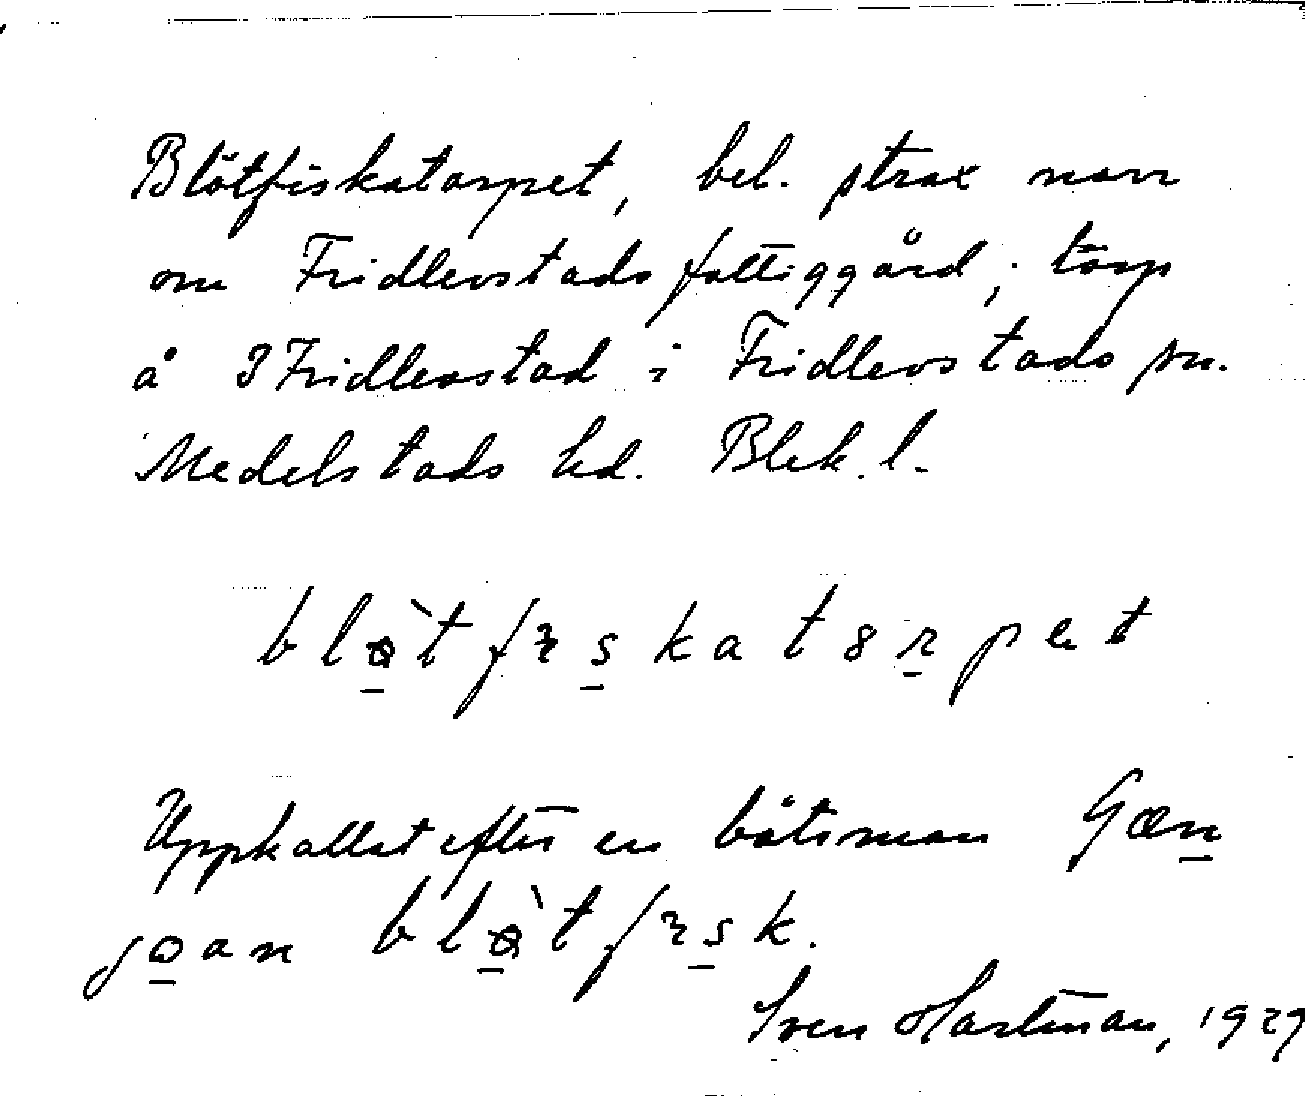 Blötfiskatorpet, bel. strax norr
om Fridlevstads fattiggård; torp
å 3 Fridlevstad i Fridlevstads sn.
Medelstads hd. Blek. l.
Uppkallat efter en båtsman
Sven Hartman, 1929